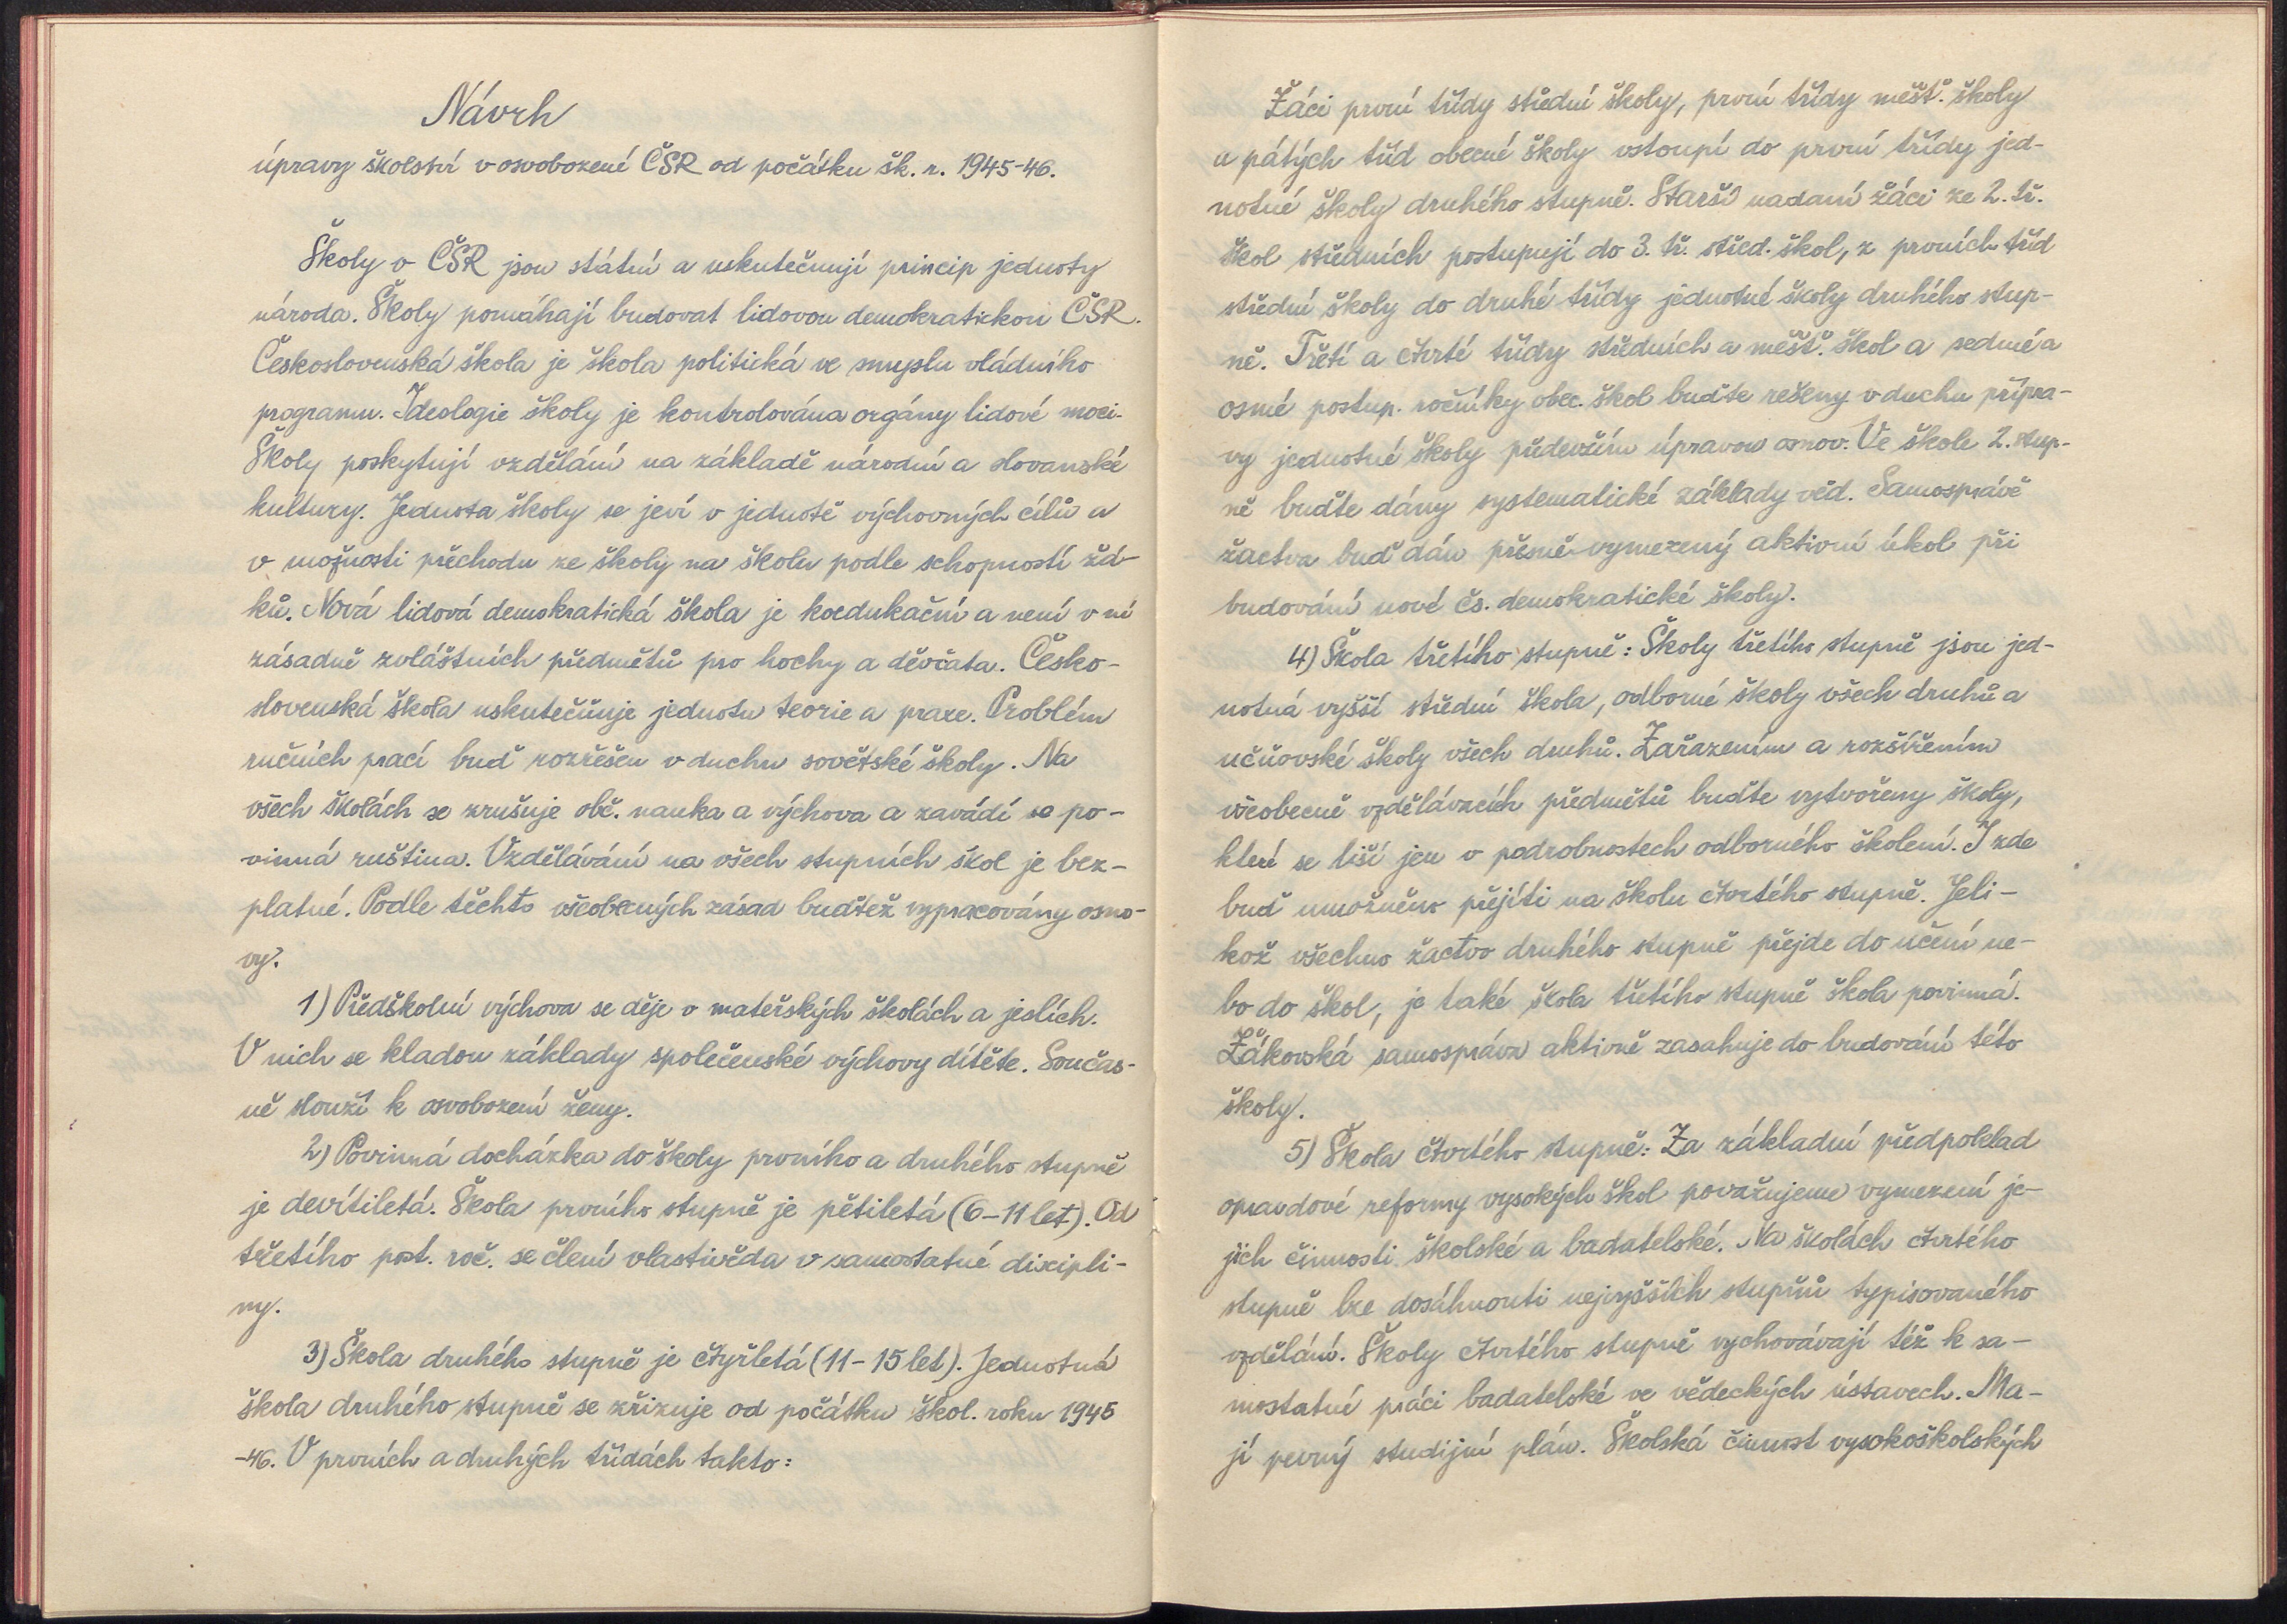 Návrh
úpravy školství v osvobozené ČSR od počátku šk. r. 1945-46.
Školy v ČSR jsou státní a uskutečňují princip jednoty
národa. Školy pomáhají budovat lidovou demokratickou ČSR.
Československá škola je škola politická ve smyslu vládního
programu. Ideologie školy je kontrolována orgány lidové moci.
Školy poskytují vzdělání na základě národní a slovanské
kultury. Jednota školy se jeví v jednotě výchovných cílů a
v možnosti přechodu ze školy na školu podle schopností žá-
ků. Nová lidová demokratická škola je koedukační a není v ní
zásadně zvláštních předmětů pro hochy a děvčata. Česko-
slovenská škola uskutečňuje jednotu teorie a praxe. Problém
ručních prací buď rozřešen v duchu sovětské školy. Na
všech školách se zrušuje obč. nauka a výchova a zavádí se po-
vinná ruština. Vzdělávání na všech stupních škol je bez-
platné. Podle těchto všeobecných zásad buďtež vypracovány osno-
vy.
1) Předškolní výchova se děje v mateřských školách a jeslích.
V nich se kladou základy společenské výchovy dítěte. Součas-
ně slouží k osvobození ženy.
2) Povinná docházka do školy prvního a druhého stupně
je devítiletá. Škola prvního stupně je pětiletá (6-11 let). Od
třetího post. roč. se člení vlastivěda v samostatné discipli-
ny.
3) Škola druhého stupně je čtyřletá (11-15 let). Jednotná
škola druhého stupně se zřizuje od počátku škol. roku 1945
-46. V prvních a druhých třídách takto:
Žáci první třídy střední školy, první třídy měšť. školy
a pátých tříd obecné školy vstoupí do první třídy jed-
notné školy druhého stupně. Starší nadaní žáci ze 2. tř.
škol středních postupují do 3. tř. střed. škol, z prvních tříd
střední školy do druhé třídy jednotné školy druhého stup-
ně. Třetí a čtvrté třídy středních a měšť. škol a sedmé a
osmé postup. ročníky obec. škol buďte řešeny v duchu přípra-
vy jednotné školy především úpravou osnov. Ve škole 2. stup-
ně buďte dány systematické základy věd. Samosprávě
žactva buď dán přesně vymezený aktivní úkol při
budování nové čs. demokratické školy.
4) Škola třetího stupně: Školy třetího stupně jsou jed-
notná vyšší střední škola, odborné školy všech druhů a
učňovské školy všech druhů. Zařazením a rozšířením
všeobecně vzdělávacích předmětů buďte vytvořeny školy,
které se liší jen v podrobnostech odborného školení. I zde
buď umožněno přejíti na školu čtvrtého stupně. Jeli-
kož všechno žactvo druhého stupně přejde do učení ne-
bo do škol, je také škola třetího stupně škola povinná.
Žákovská samospráva aktivně zasahuje do budování této
školy.
5) Škola čtvrtého stupně: Za základní předpoklad
opravdové reformy vysokých škol považujeme vymezení je-
jich činnosti školské a badatelské. Na školách čtvrtého
stupně lze dosáhnouti nejvyšších stupňů typisovaného
vzdělání. Školy čtvrtého stupně vychovávají též k sa-
mostatné práci badatelské ve vědeckých ústavech. Ma-
jí pevný studijní plán. Školská činnost vysokoškolských